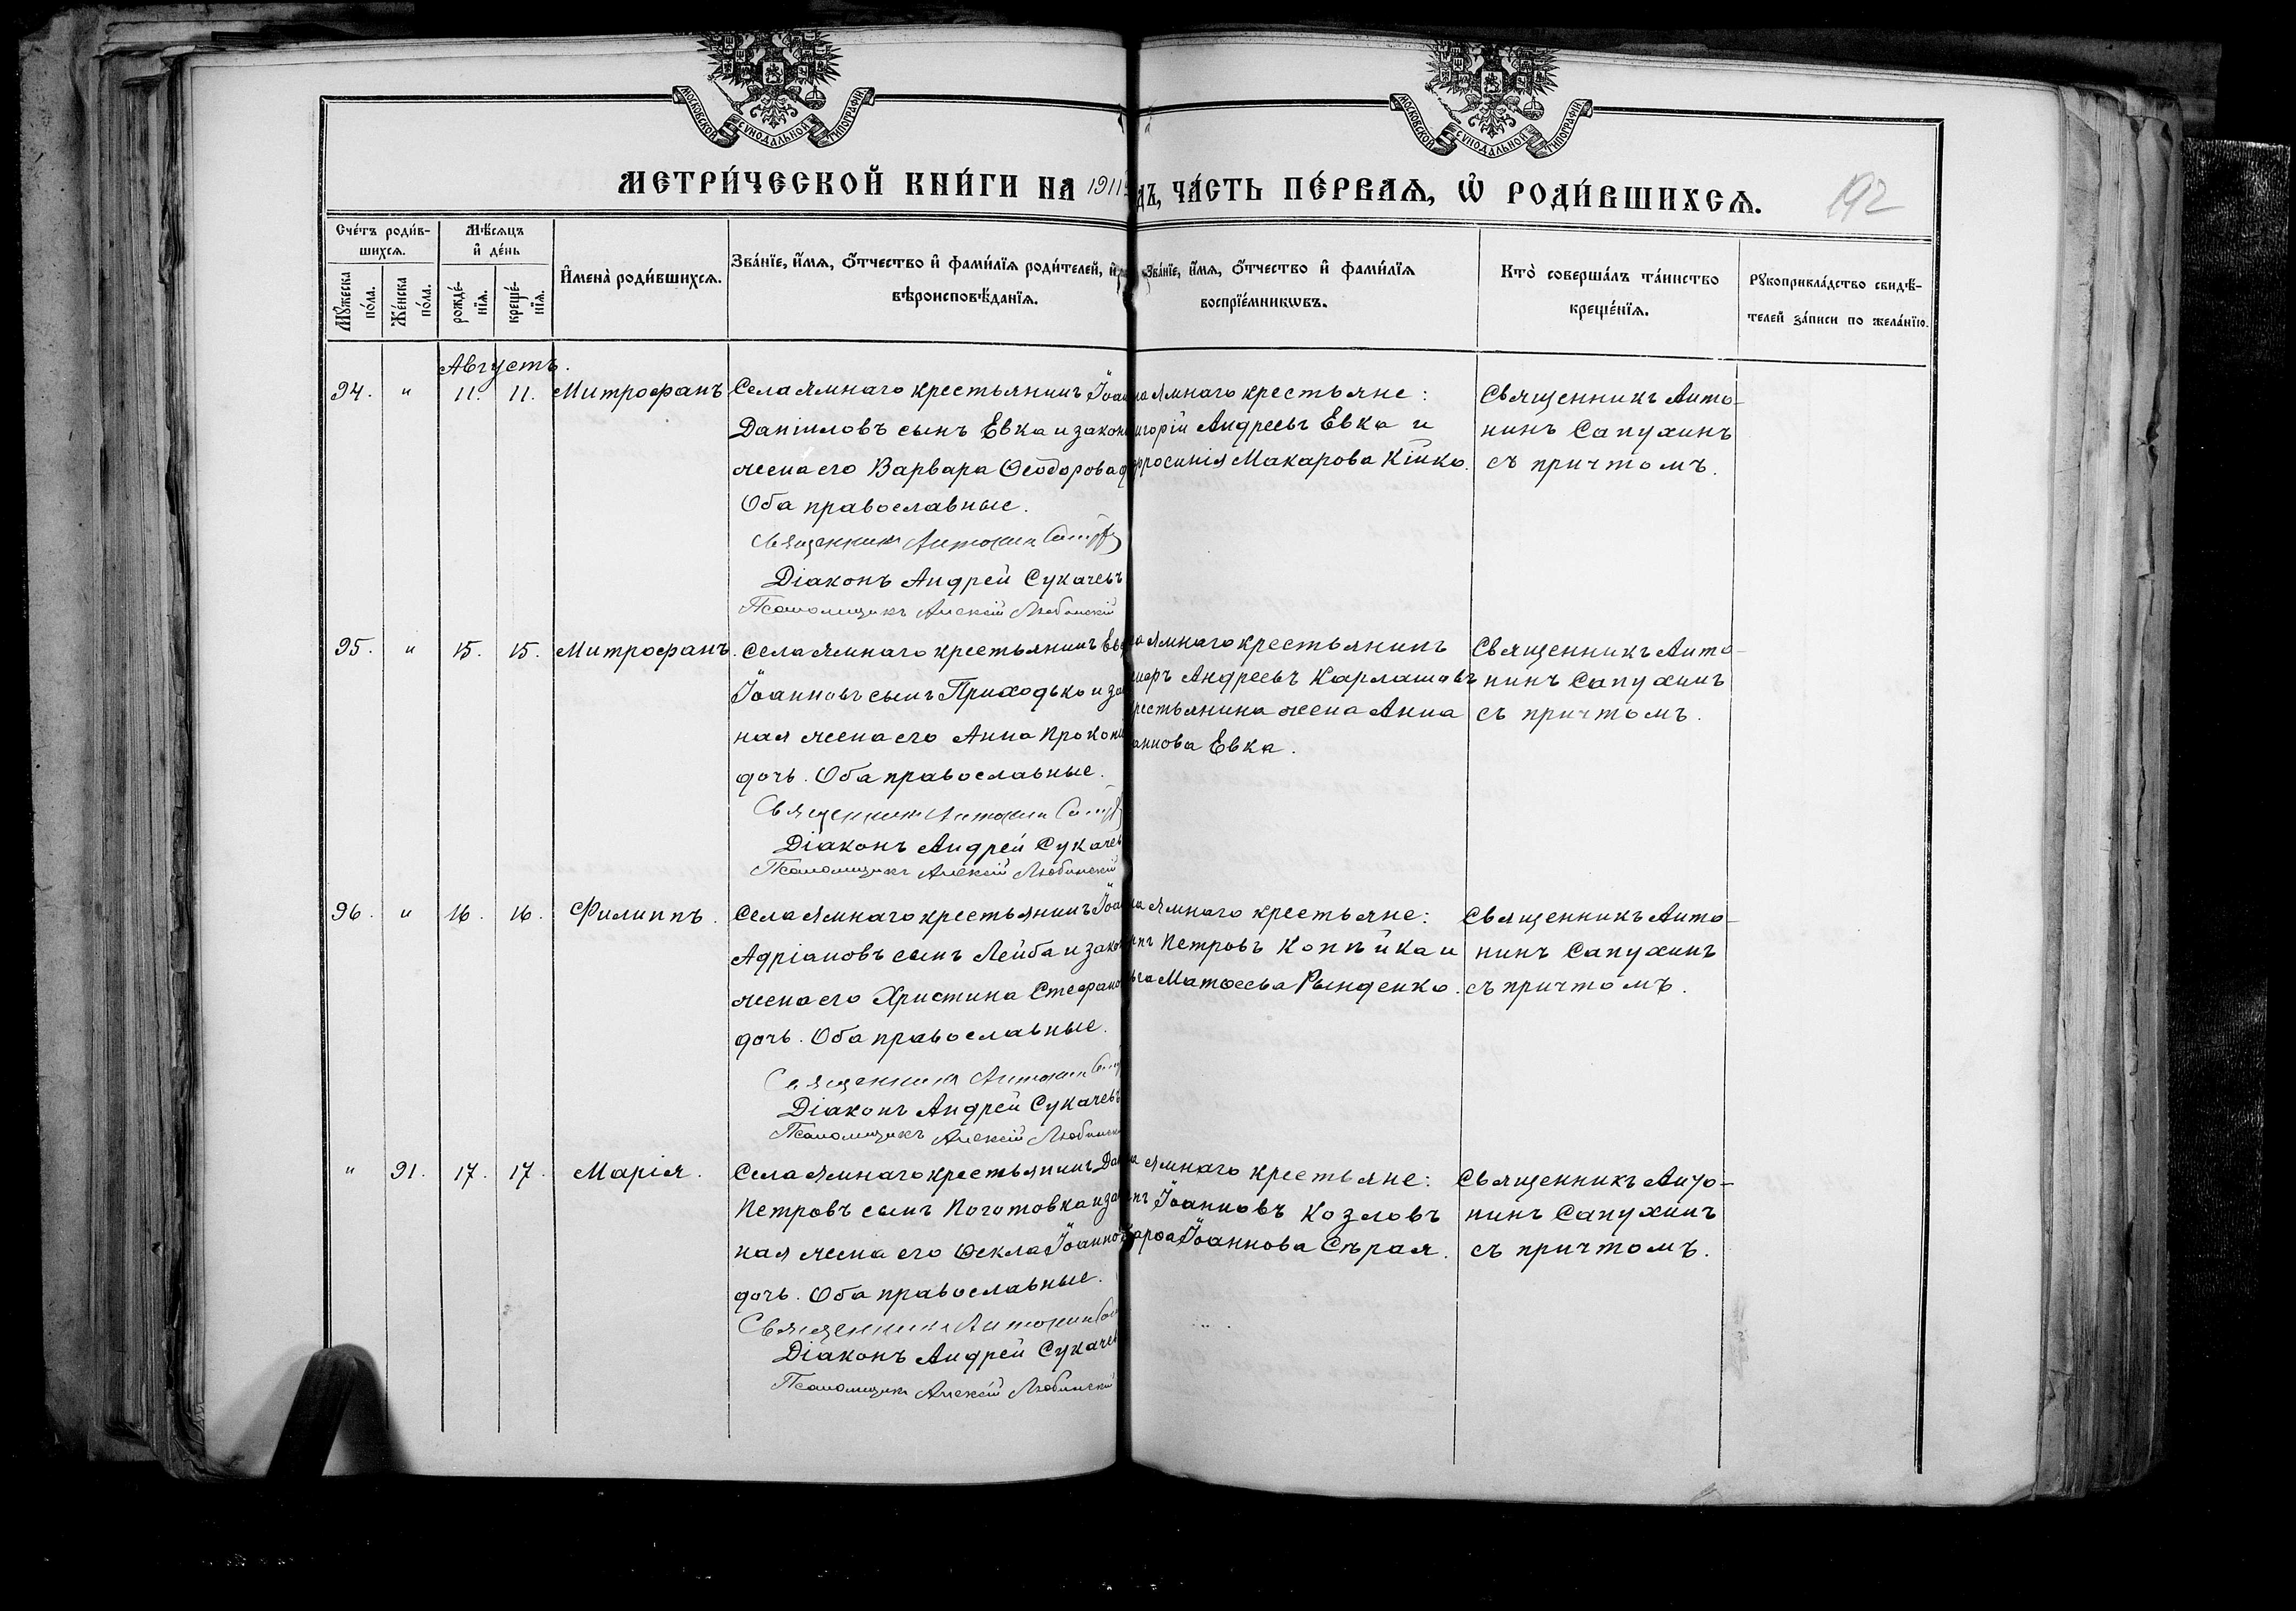 МОСКОВСКОЙ СѴНОДАЛЬНОЙ ТИПОГРАФІИ
МОСКОВСКОЙ СѴНОДАЛЬНОЙ ТИПОГРАФІИ
МЕТРИ́ЧЕСКОЙ КНИ́ГИ НА 1911
ДЪ, ЧА́СТЬ ПЕ́РВАѦ, Ѡ҆ РОДИ́ВШИХСѦ.
192
Сче́тъ роди́в-
шихсѧ.
Мꙋ́жеска по́ла.
Же́нска по́ла.
Мѣ́сѧцъ
и҆ де́нь
рожде́-
нїѧ.
креще́-
нїѧ.
И҆мена̀ роди́вшихсѧ.
Зва́нїе, и҆́мѧ, ѻ҆́тчество и҆ фами́лїѧ роди́телей, и҆
вѣроисповѣ́данїѧ.
Зва́нїе, и҆́мѧ, ѻ҆́тчество и҆ фами́лїѧ
воспрїе́мникѡвъ.
Кто̀ соверша́лъ та́инство
креще́нїѧ.
Рꙋкоприкла́дство свидѣ́-
телей за́писи по жела́нїю.
Августъ.
94. " 11. 11. Митрофанъ
Села Ямнаго крестьянинъ Іоан
Даніиловъ сынъ Евка и закон
жена его Варвара Ѳеодорова д
Оба православные.
Священникъ Антонин
Діаконъ Андрей Сукачевъ
Псаломщикъ Алексій Любинскій
на Ямнаго крестьяне:
игорій Андреевъ Евка и
фросинія Макарова Кійко.
Священникъ Анто-
нинъ Сапухинъ
съ причтомъ.
95. " 15. 15. Митрофанъ.
Села Ямнаго крестьянинъ Ев
Іоанновъ сынъ Приходько и за
ная жена его Анна Прокопі
дочь. Оба православные.
Священникъ Антонин
Діаконъ Андрей Сукачев
Псаломщикъ Алексій Любинскій
ла Ямнаго крестьянинъ
Андреевъ Карлашовъ
рестьянина жена Анна
аннова Евка.
Священникъ Анто-
нинъ Сапухинъ
съ причтомъ.
96. " 16. 16. Филиппъ.
Села Ямнаго крестьянинъ Іоан
Адріановъ сынъ Лейба и закон
жена его Христина Стефано
дочь. Оба православные.
Священникъ Антонин
Діаконъ Андрей Сукачевъ
Псаломщикъ Алексій Любинск
ла Ямнаго крестьяне:
Петровъ Копѣйка и
ьга Матѳеева Рынденко.
Священникъ Анто-
нинъ Сапухинъ
съ причтомъ.
" 91. 17. 17. Марія.
Села Ямнаго крестьянинъ Да
Петровъ сынъ Поготовка и за
ная жена его Ѳекла Іоанно
дочь. Оба православные.
Священникъ Антонин
Діаконъ Андрей Сукачев
Псаломщикъ Алексій Любински
ла Ямнаго крестьяне:
Іоанновъ Козловъ
Іоаннова Сѣрая.
Священникъ Анто-
нинъ Сапухинъ
съ причтомъ.